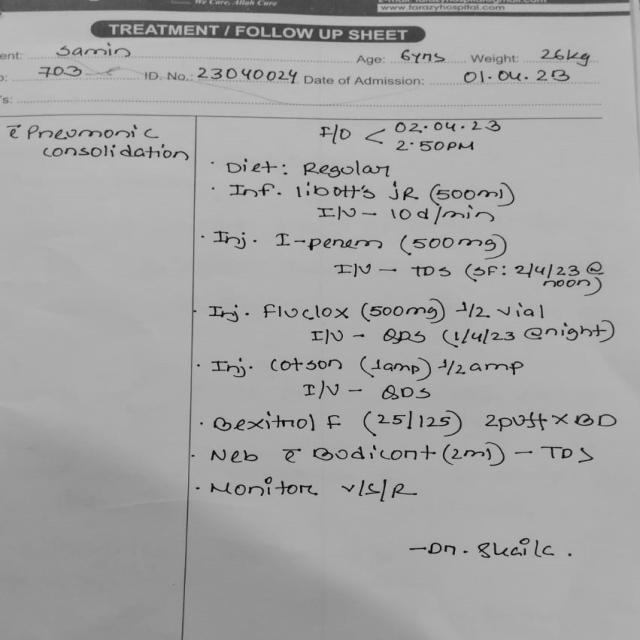 We Care, Allah Cure
www.farazyhospital.com
TREATMENT / FOLLOW UP SHEET
ent: Samin Age: 6yrs Weight: 26kg
o: 703 ID. No.: 23040024 Date of Admission: 01.04.23
's:
c̄ Pneumonic
consolidation
F/O < 02.04.23
2.50PM
· Diet: Regular
· Inf. libott's JR (500ml)
I/V – 10d/min
· Inj. I-penem (500mg)
I/V – TDS (SF: 2/4/23 @
noon)
· Inj. Fluclox (500mg) 1/2 vial
I/V – QDS (1/4/23 @night)
· Inj. Cotson (1amp) 1/2 amp
I/V – QDS
· Bexitrol F (25/125) 2puff X BD
· Neb c̄ Budicort (2ml) – TDS
· Monitor v/s/R
– Dr. Shaila.